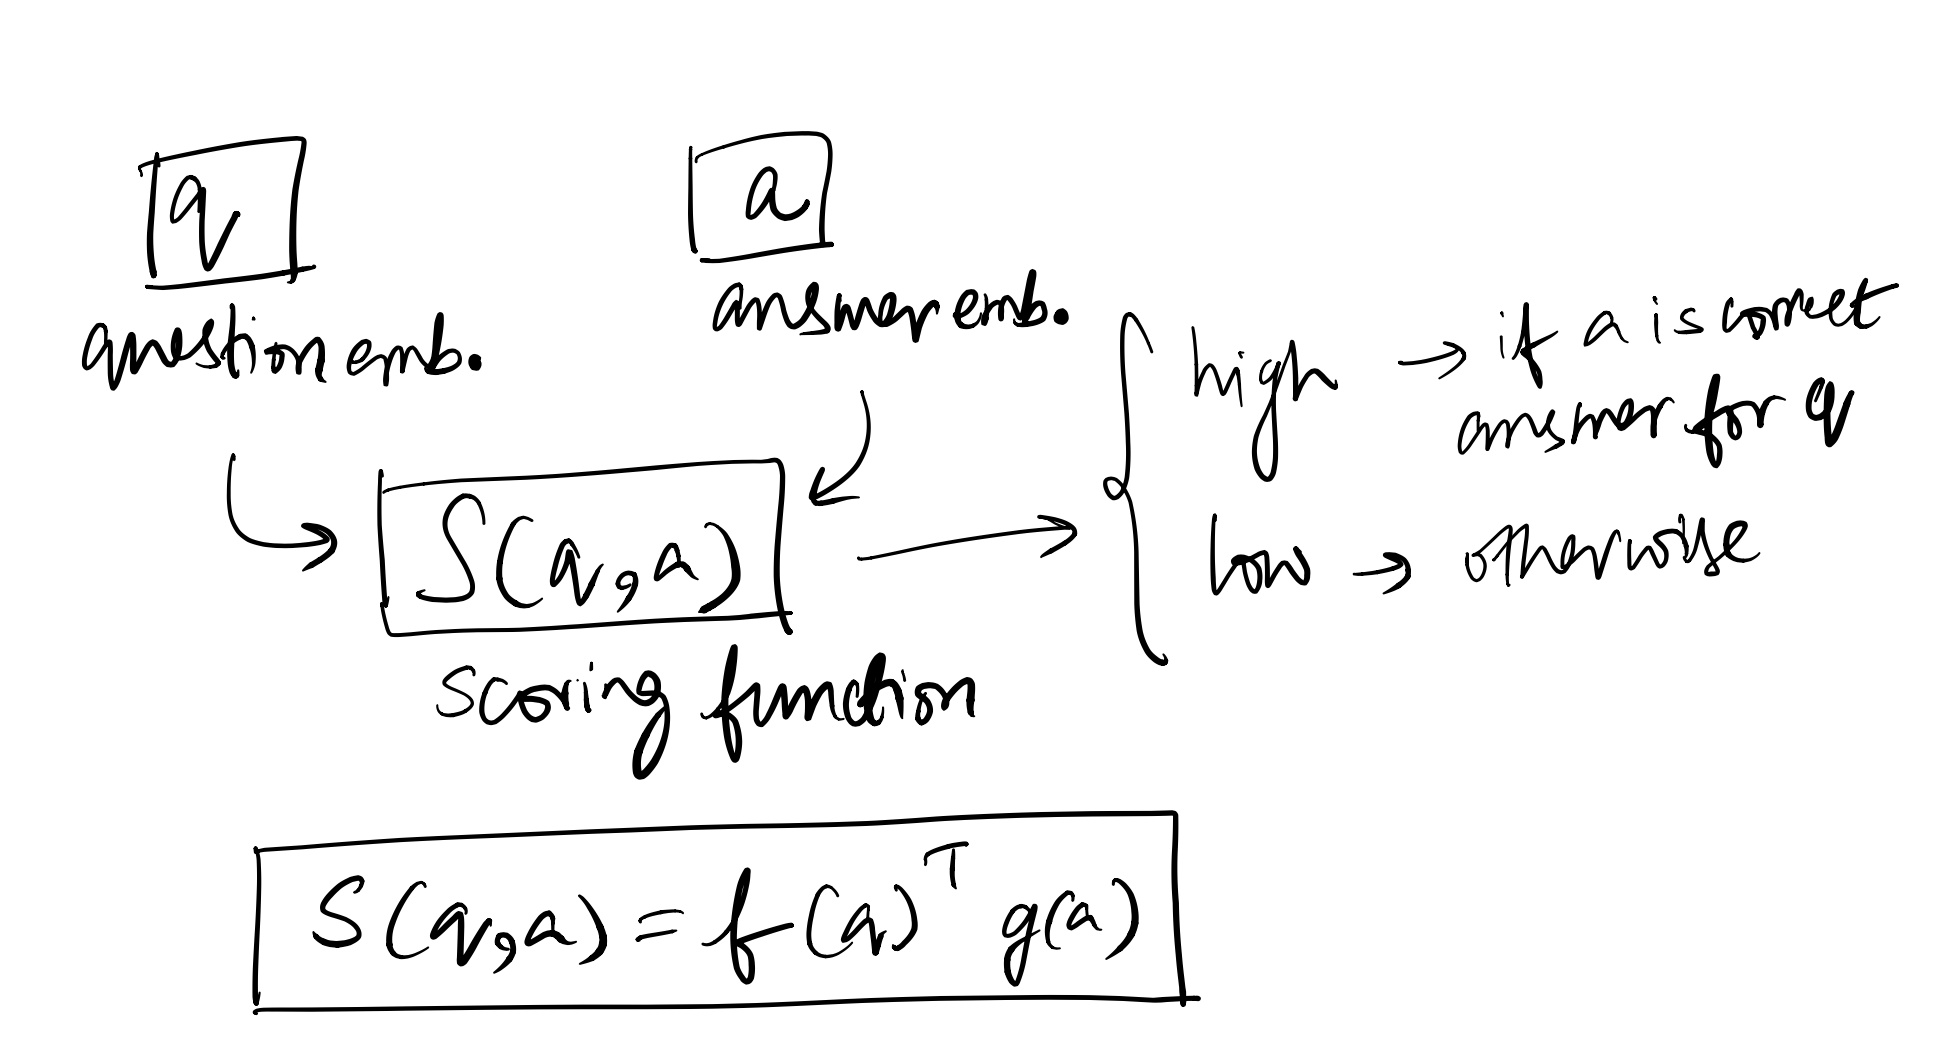 q
a
question emb.
answer emb.
S(q,a)
scoring function
high → if a is correct
answer for q
low → otherwise
S(q,a) = f(q)^T g(a)